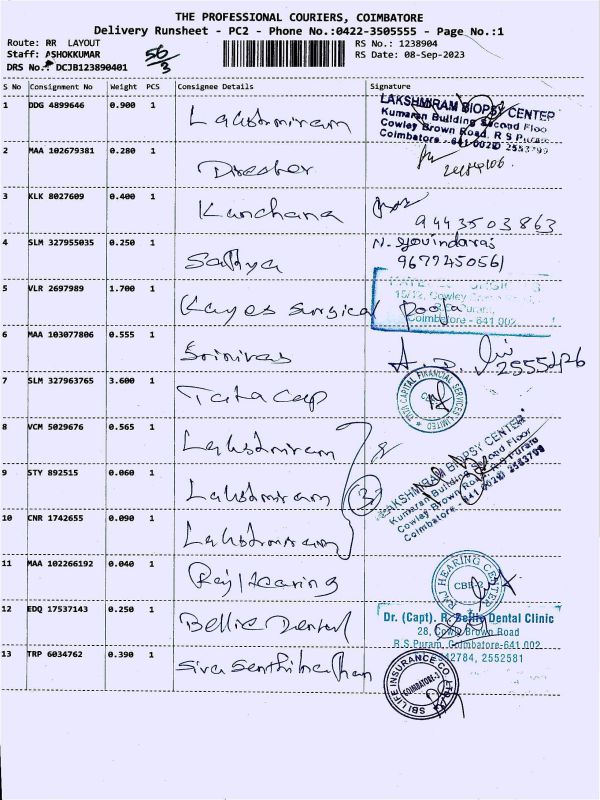 THE PROFESSIONAL COURIERS, COIMBATORE
Delivery Runsheet - PC2 - Phone No.:0422-3505555 - Page No.:1
Route: RR LAYOUT RS No.: 1238904
Staff: ASHOKKUMAR 56/3 RS Date: 08-Sep-2023
DRS No.: DCJB123890401
S No Consignment No Weight PCS Consignee Details Signature
1 DDG 4899646 0.900 1 Lakshmiram
LAKSHMIRAM BIOPSY CENTER
Kumaran Building Second Floo
Cowley Brown Road, R S Puram
Coimbatore - 641 002
2 MAA 102679381 0.280 1 Director
3 KLK 8027609 0.400 1 Kanchana 9443503863
4 SLM 327955035 0.250 1 Sathya N. Govindaraj
9677450561
5 VLR 2697989 1.700 1 Kayes Surgical Pooja
15/12, Cowley
Coimbatore - 641 002
6 MAA 103077806 0.555 1 Srinivas 2555426
7 SLM 327963765 3.600 1 Tata Cap
TATA CAPITAL FINANCIAL SERVICES LIMITED
8 VCM 5029676 0.565 1 Lakshmiram
9 STY 892515 0.060 1 Lakshmiram 3
10 CNR 1742655 0.090 1 Lakshmiram
LAKSHMIRAM BIOPSY CENTER
Kumaran Building Second Floor
Cowley Brown Road, R S Puram
Coimbatore - 641 002
11 MAA 102266192 0.040 1 Raj Hearing
RAJ HEARING CENTER
CBE-2
12 EDQ 17537143 0.250 1 Bellie Dental
Dr. (Capt). R. Bellie Dental Clinic
28, Cowly Brown Road
R.S.Puram, Coimbatore-641 002
42784, 2552581
13 TRP 6034762 0.390 1 Siva Senthilnathan
SBI LIFE INSURANCE CO LTD
COIMBATORE-2